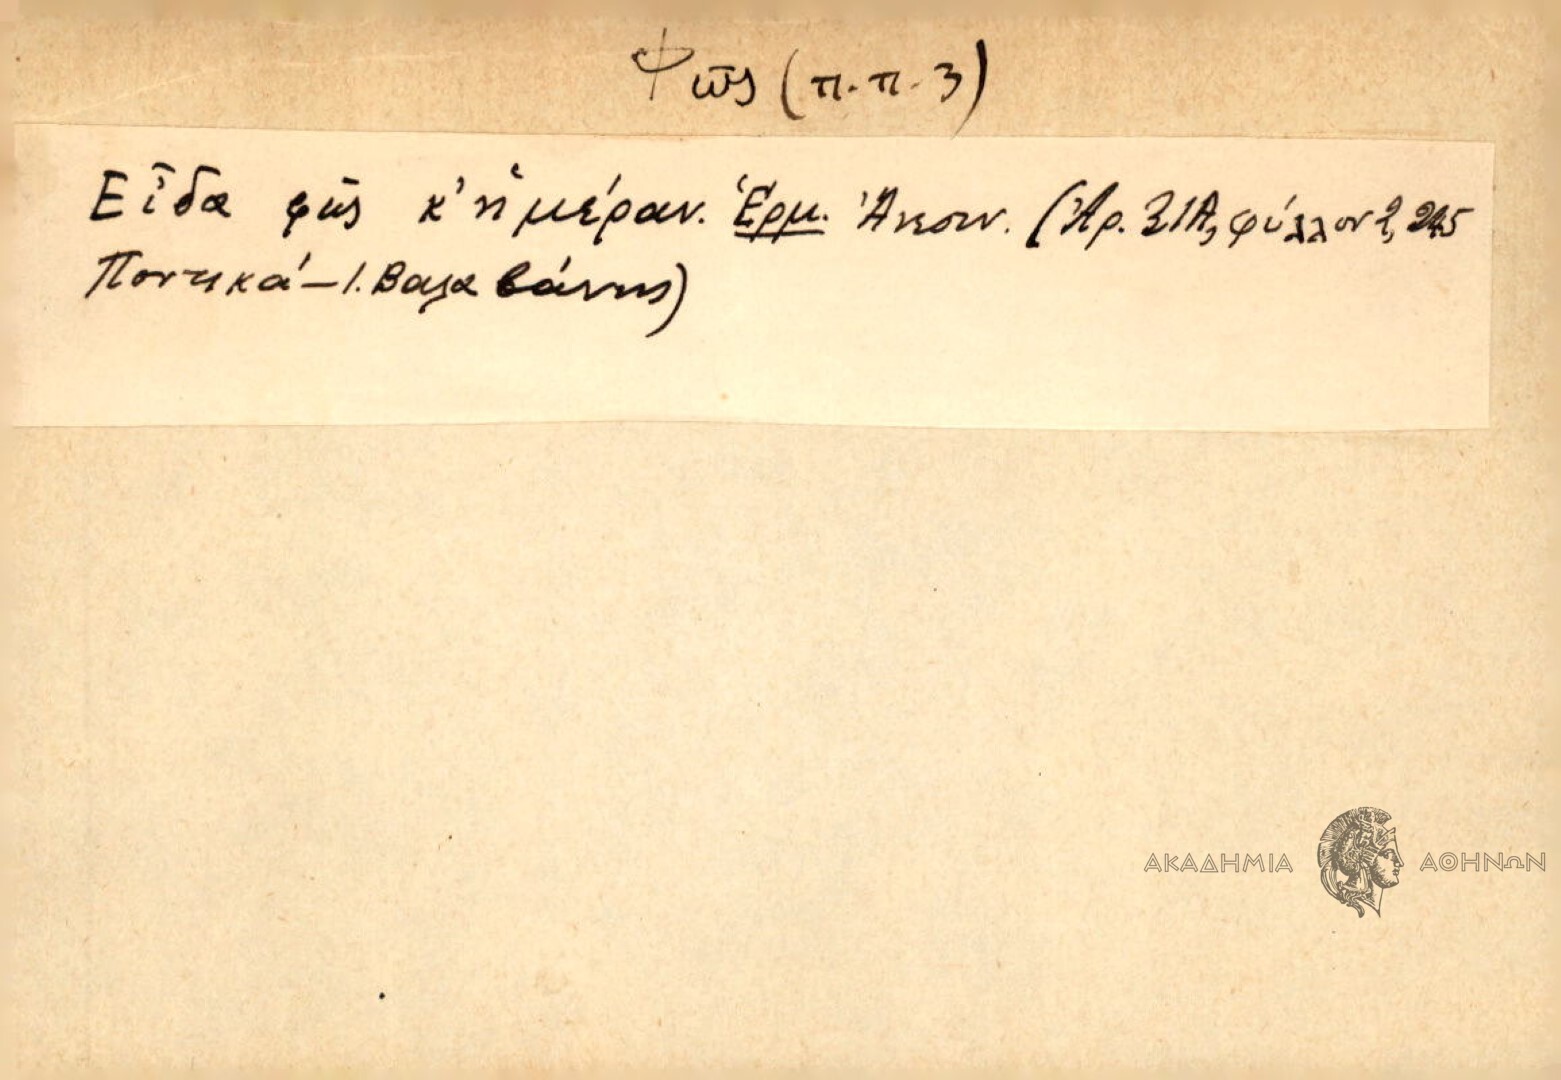 Φῶς (π.π. 3)
Εἶδα φῶς κ' ἡμέραν. Ἑρμ. Ἄνεσιν. (Ἀρ. 31Α, φύλλον 2, 245
Ποντικά – Ι. Βαλαβάνης)
ΑΚΑΔΗΜΙΑ ΑΘΗΝΩΝ